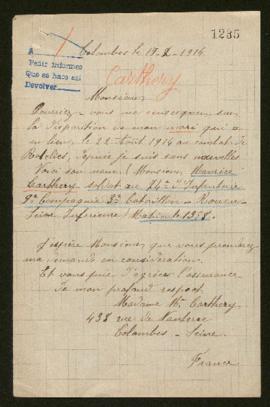 1235
A
Pedir informes
Que se hace así
Devolver
1
Colombes le 18-2-1915
Carthery
Monsieur,
Pourriez-vous me renseigner sur
la disposition de mon mari qui a
eu lieu, le 22 Août 1914 au combat de
depuis je suis sans nouvelles
Voici son nom: Monsieur Maurice
Carthery soldat au 74e d'Infanterie
9e Compagnie 3e Bataillon - Rouen
Seine Inférieure Matricule 1358.
J'espère Monsieur, que vous prendrez
ma demande en considération.
Et vous prie d'agréer l'assurance
de mon profond respect
Madame M. Carthery
438 rue de Nanterre
Colombes - Seine
France